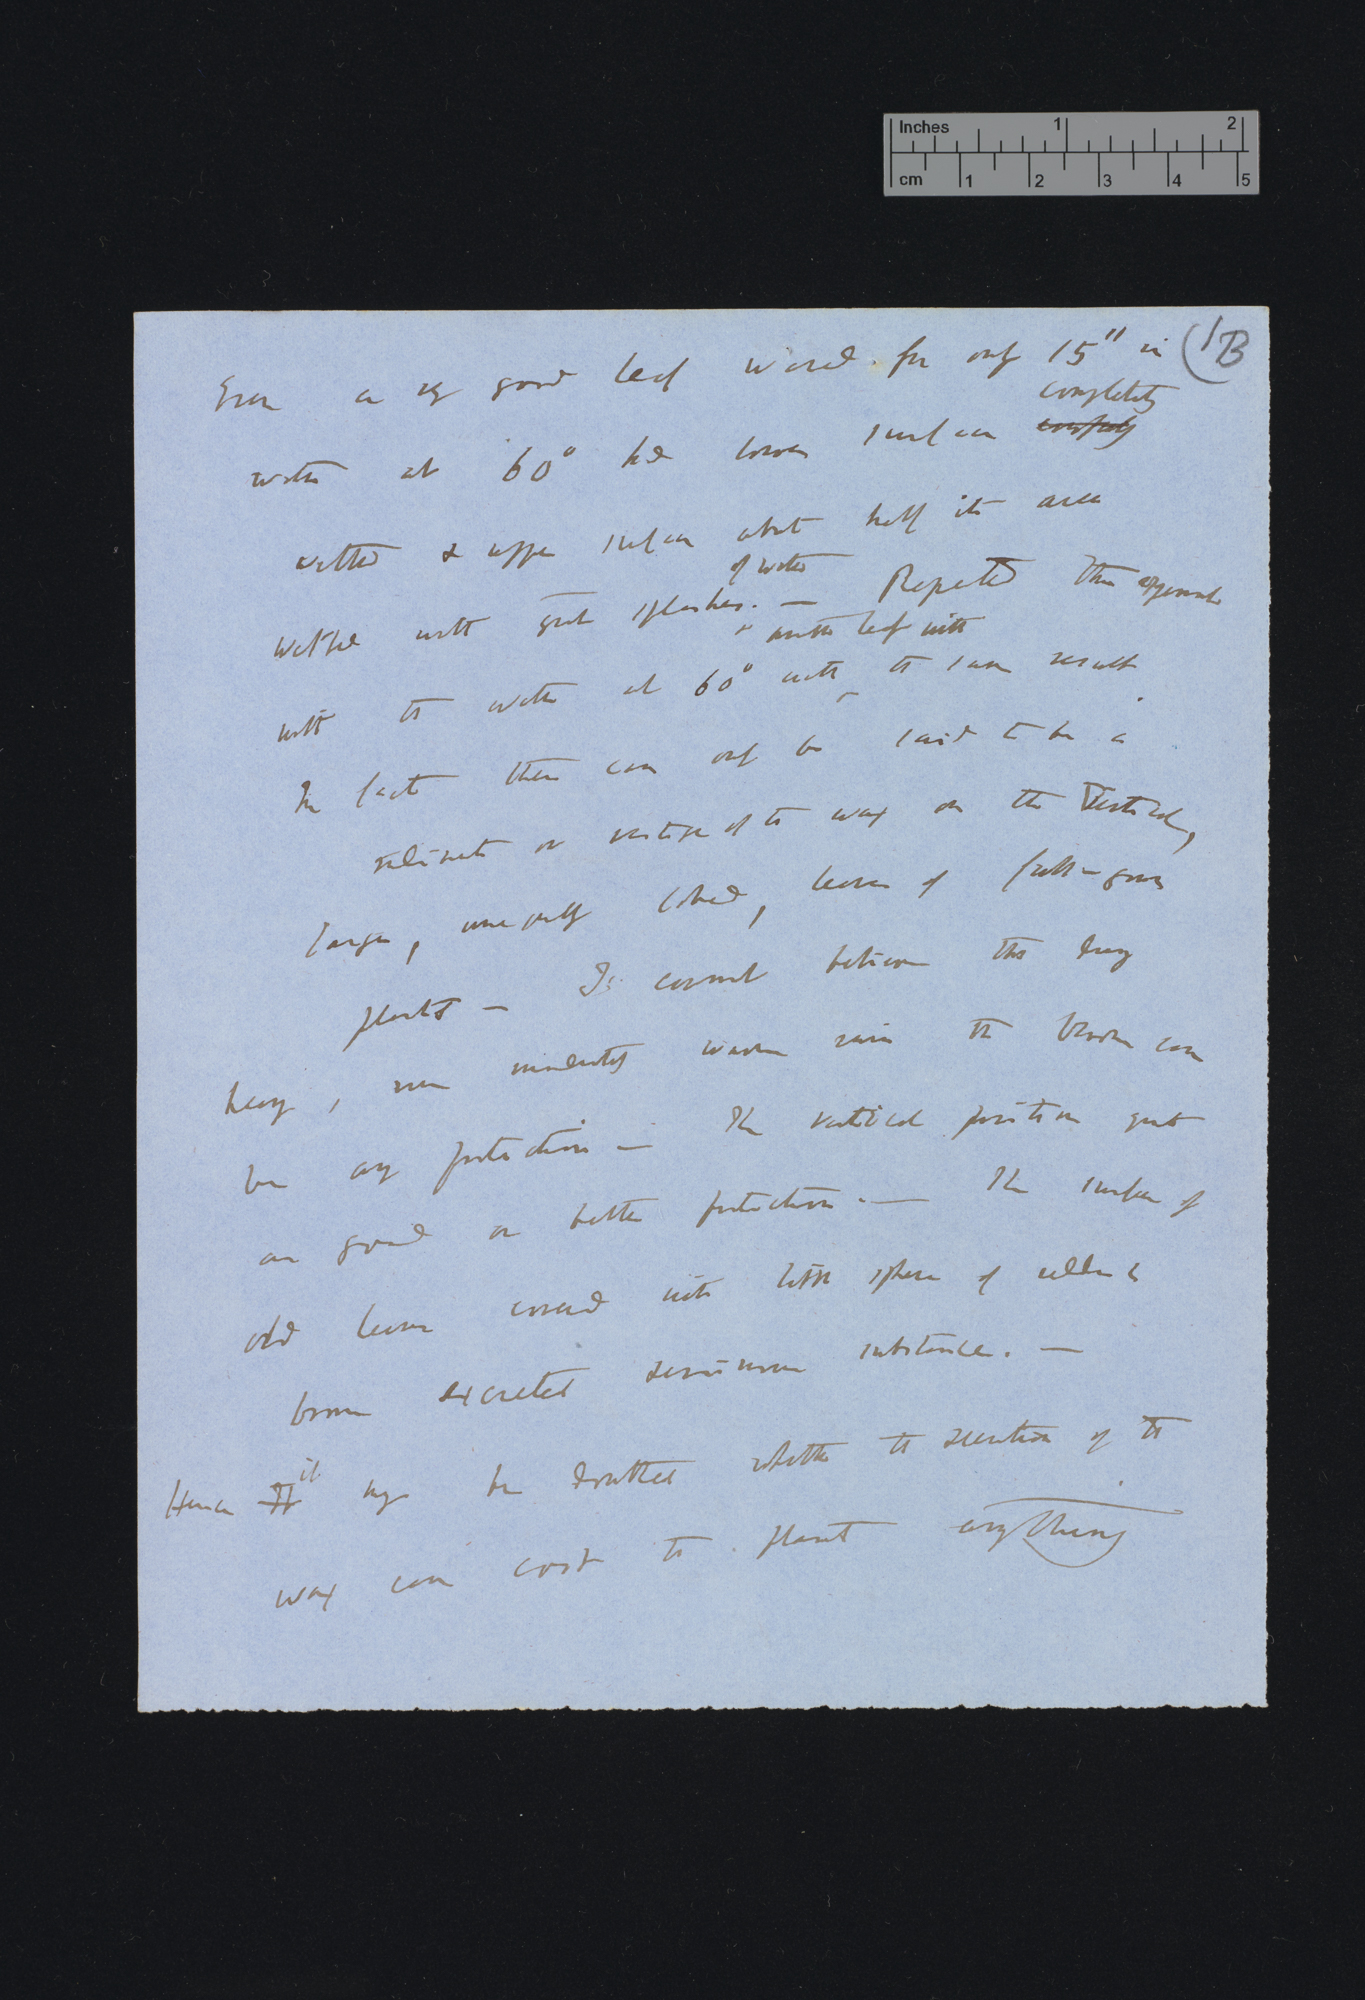 Inches 1 2
cm 1 2 3 4 5
(1B
Even a very good leaf waved for only 15" in
completely
water at 60° had lower surface
wetted & upper surface about half its area
of water
wetted with great splashes. — Repeated this experiment
another leaf with
with the water at 60° with the same result
In fact there can only be said to be a
rudiment or vestige of the wax on the vertical,
larger, unequally lobed, leaves of full-grown
plants — I cannot believe tho' during
heavy, even moderately warm rain the bloom can
be any protection — The vertical position great
as good or better protection. — The surface of
old leaves covered with little spheres of reddish
brown excreted resinous substance. —
it
Hence may be doubted whether the secretion of the
wax can cost the plant anything